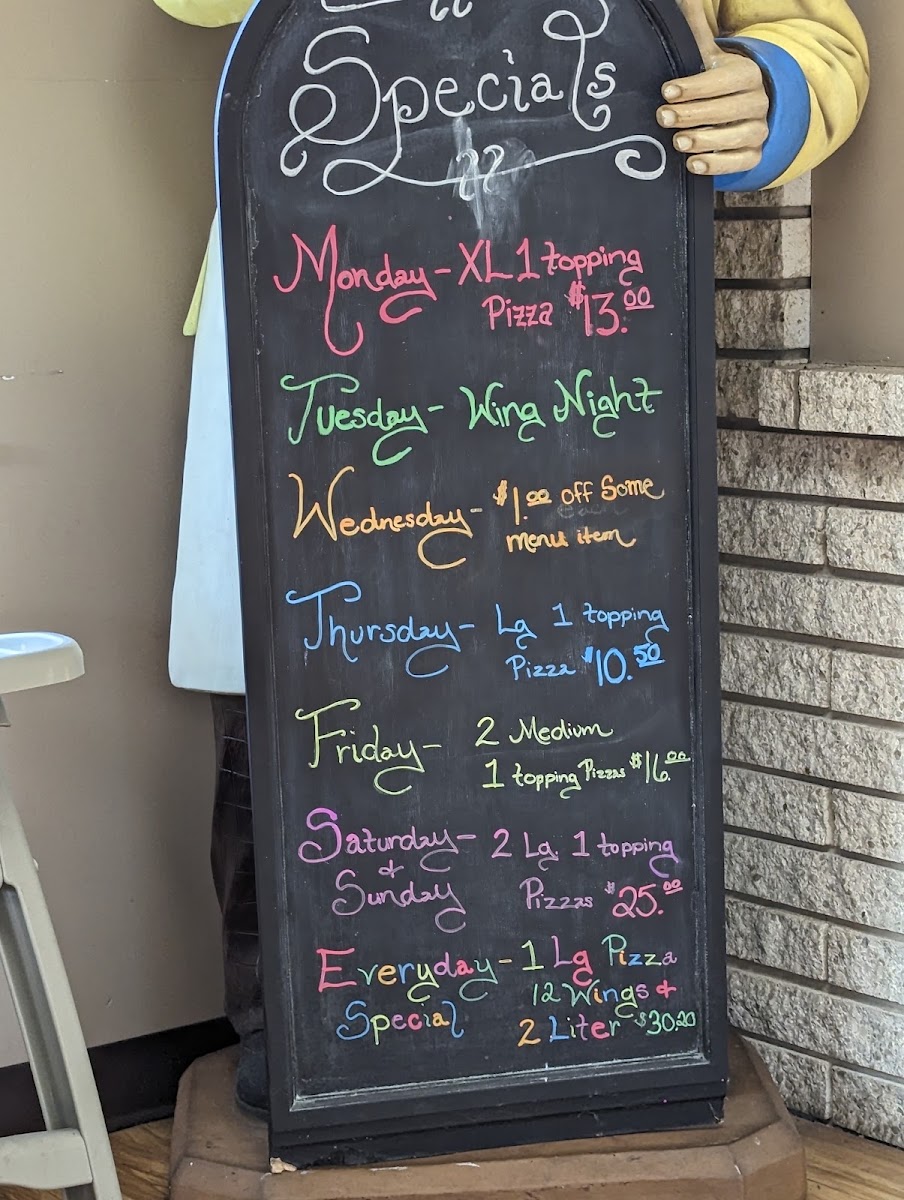 Specials
Monday - XL 1 topping
Pizza $13.00
Tuesday - Wing Night
Wednesday - $1.00 off Some
menu item
Thursday - Lg 1 topping
Pizza $10.50
Friday - 2 Medium
1 topping Pizzas $16.00
Saturday - 2 Lg. 1 topping
&
Sunday Pizzas $25.00
Everyday - 1 Lg Pizza
12 Wings &
Special 2 Liter $30.20